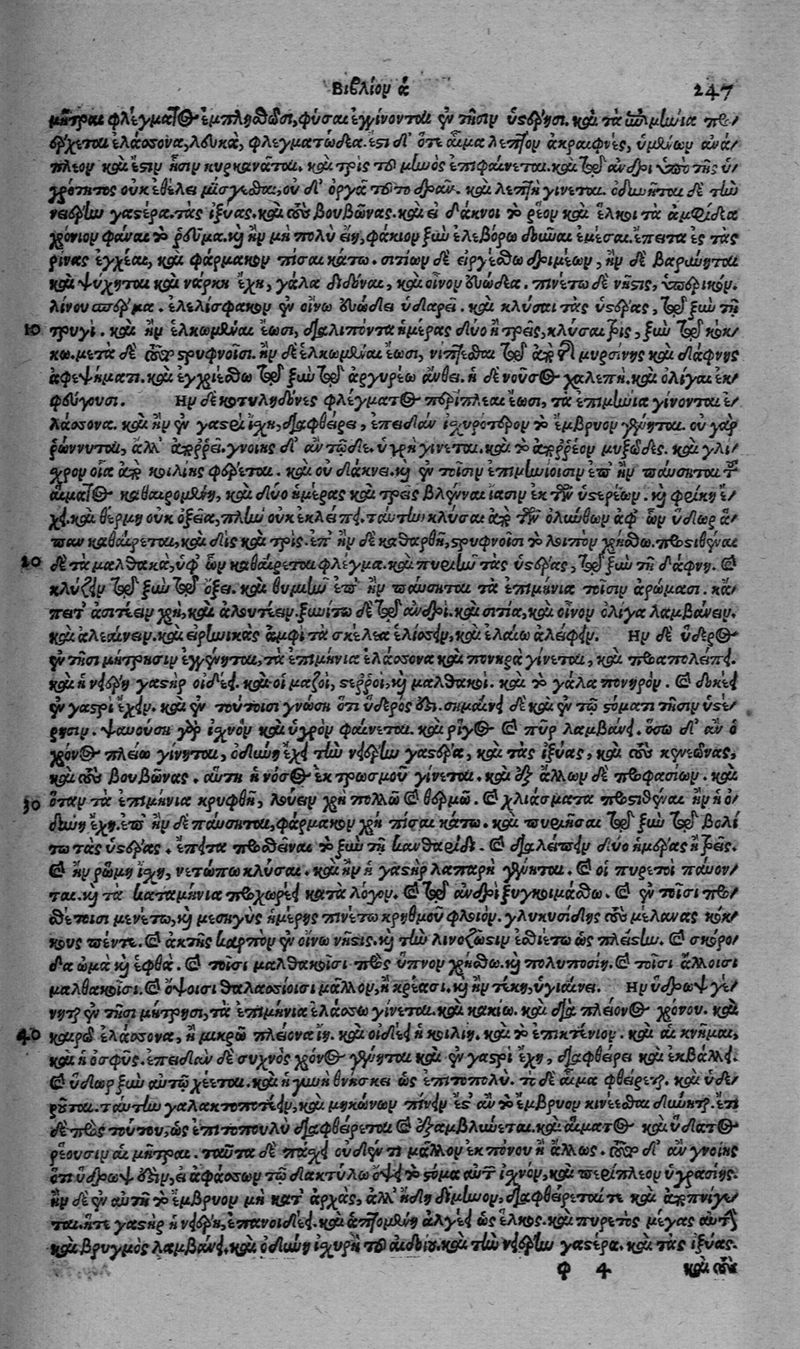 Βιβλίον ά 247
μῆτραι φλέγματος ἐμπλησθῶσι, φῦσαι ἐγγίνονται ἐν τῇσιν ὑστέρῃσι. καὶ τὰ ἐπιμήνια προ/
έρχεται ἐλάσσονα, λευκὰ, φλεγματώδεα. ἔστι δ' ὅτε αἷμα λεπτὸν ἀκραιφνὲς, ὑμένων ἀνά/
πλεον καὶ ἔστιν ᾗσιν κυρκανᾶται. καὶ τρὶς τοῦ μηνὸς ἐπιφαίνεται. καὶ τῷ ἀνδρὶ ὑπὸ τῆς ὑ/
γρότητος οὐκ ἐθέλει μίσγεσθαι, οὐ δ' ὀργᾷ τοῦτο δρᾶν. καὶ λεπτὴ γίνεται. ὀδυνᾶται δὲ τὴν
νείερην γαστέρα. τὰς ἰξύας. καὶ τοὺς βουβῶνας. καὶ εἰ δάκνοι τὸ ῥέον καὶ ἑλκοῖ τὰ ἀμφίδια
χρόνιον φάναι τὸ ῥεῦμα. κὴ ἢν μὴ πολὺ ἔῃ, φάκιον ξὺν ἐλεβόρω δοῦναι ἐμέσαι. ἔπειτα ἐς τὰς
ῥῖνας ἐγχέαι, καὶ φάρμακον πῖσαι κάτω. σιτίων δὲ εἰργέσθω δριμέων, ἢν δὲ βαρύνηται
καὶ ψύχηται καὶ νάρκη ἔχη, γάλα διδόναι, καὶ οἶνον εὐώδεα. πινέτω δὲ νῆστις, ὑπερικόν.
λίνου σπέρμα. ἐλελίσφακον ἐν οἴνω εὐώδει ὑδαρεῖ. καὶ κλύσαι τὰς ὑστέρας, τῷ ξὺν τῇ
10 τρυγί. καὶ ἢν ἑλκωμέναι ἔωσι, διαλιπόντα ἡμέρας δύο ἢ τρεῖς, κλύσαι τρὶς, ξὺν τῷ κόκ/
κω. μετὰ δὲ τοῖσι στρυφνοῖσι. ἢν δὲ ἑλκωμέναι ἔωσι, νιπτέσθαι τῷ ἀπὸ τῆς μυρσίνης καὶ δάφνης
ἀφεψήματι. καὶ ἐγχριέσθω τῷ ξὺν τῷ ἀργυρέω ἄνθει. ἡ δὲ νοῦσος χαλεπὴ. καὶ ὀλίγαι ἐκ/
φεύγουσι. Ἢν δὲ κοτυληδόνες φλέγματος περίπλεαι ἔωσι, τὰ ἐπιμήνια γίνονται ἐ/
λάσσονα. καὶ ἢν ἐν γαστρὶ ἴσχη, διαφθείρει, ἐπειδὰν ἰσχυρότερον τὸ ἔμβρυον γένηται. οὐ γὰρ
ῥώννυται, ἀλλ' ἀπορρεῖ. γνοίης δ' ἂν τῷδε. ὑγρὴ γίνεται. καὶ τὸ ἀπορρέον μυξῶδες. καὶ γλί/
σχρον οἷα ἀπὸ κοιλίης φέρεται. καὶ οὐ δάκνει. κὴ ἐν τοῖσιν ἐπιμηνίοισιν ἐπ' ἢν παύσηται τοῦ
αἵματος καθαιρομένη, καὶ δύο ἡμέρας καὶ τρεῖς βλένναι ἴασιν ἐκ τῶν ὑστερέων. κὴ φρίκη ἔ/
χει. καὶ θέρμη οὐκ ὀξεῖα, πλὴν οὐκ ἐκλείπει. ταύτην κλύσαι ἀπὸ τῶν ὀλύνθων ἀφ' ὧν ὕδωρ ἅ/
παν καθαίρεται, καὶ δὶς καὶ τρίς. ἐπ' ἢν δὲ καθαρθῆ, στρυφνοῖσι τὸ λοιπὸν χρήσθω. προσθεῖναι
20 δὲ τὰ μαλθακὰ, ὑφ' ὧν καθαίρεται φλέγμα. καὶ πυριῆν τὰς ὑστέρας, τῷ ξὺν τῇ δάφνη. καὶ
κλύζειν τῷ ξὺν τῷ ὄξει. καὶ θυμιῆν ἐπ' ἢν παύσηται τὰ ἐπιμήνια τοῖσιν ἀρώμασι. κἄ/
πειτ' ἀσιτέειν χρὴ, καὶ ἀλουτέειν. ξυνίτω δὲ τῷ ἀνδρί. καὶ σιτία, καὶ οἶνον ὀλίγα λαμβάνειν.
καὶ ἀλεαίνειν. καὶ εἰρινικὰς ἀμφὶ τὰ σκέλεα ἑλίσσειν, καὶ ἐλαίω ἀλείφειν. Ἢν δὲ ὕδερος
ἐν τῇσι μήτρῃσιν ἐγγένηται, τὰ ἐπιμήνια ἐλάσσονα καὶ πονηρὰ γίνεται, καὶ προαπολείπει.
καὶ ἡ νείερη γαστὴρ οἰδέει. καὶ οἱ μαζοὶ, στερροὶ, κὴ μαλθακοί. καὶ τὸ γάλα πονηρόν. καὶ δοκέει
ἐν γαστρὶ ἔχειν. καὶ ἐν τούτοισι γνώση ὅτι ὕδερός ἐστι. σημαίνει δὲ καὶ ἐν τῷ στόματι τῇσιν ὑστέ/
ρῃσιν. ψαυούση γὰρ ἰσχνὸν καὶ ὑγρὸν φαίνεται. καὶ ῥῖγος καὶ πῦρ λαμβάνει. ὅσω δ' ἂν ὁ
χρόνος πλείω γίνηται, ὀδύνη ἔχει τὴν νείερην γαστέρα, καὶ τὰς ἰξύας, καὶ τοὺς κενεῶνας,
καὶ τοὺς βουβῶνας. αὕτη ἡ νόσος ἐκ τρωσμοῦ γίνεται. καὶ ἐξ ἄλλων δὲ προφασίων. καὶ
30 ὅταν τὰ ἐπιμήνια κρυφθῆ, λούειν χρὴ πολλῶ καὶ θερμῶ. καὶ χλιάσματα προστιθέναι ἢν ἡ ὀ/
δύνη ἔχη. ἐπ' ἢν δὲ παύσηται, φάρμακον χρὴ πῖσαι κάτω. καὶ πυριῆσαι τῷ ξὺν τῷ βολί/
τω τὰς ὑστέρας. ἔπειτα προσθεῖναι τὸ ξὺν τῇ κανθαρίδι. καὶ διαλείπειν δύο ἡμέρας ἢ τρεῖς.
καὶ ἢν ῥώμη ἴσχη, νετώπω κλύσαι. καὶ ἢν ἡ γαστὴρ λαπαρὴ γένηται. καὶ οἱ πυρετοὶ παύον/
ται. κὴ τὰ καταμήνια προχωρέει κατὰ λόγον. καὶ τῷ ἀνδρὶ ξυγκοιμάσθω. καὶ ἐν τοῖσι προσ/
θέτοισι μενέτω, κὴ μεσηγὺς ἡμέρης πινέτω κρήθμου φλοιόν. γλυκυσίδης τοὺς μέλανας κόκ/
κους πέντε. καὶ ἀκτῆς καρπὸν ἐν οἴνω νῆστις. κὴ τὴν λινόζωστιν ἐσθιέτω ὡς πλείστην. καὶ σκόρο/
δα ὠμὰ κὴ ἑφθὰ. καὶ τοῖσι μαλθακοῖσι πρὸς ὕπνον χρήσθω. κὴ πολυποσίη. καὶ τοῖσι ἄλλοισι
μαλθακοῖσι. καὶ ὄψοισι θαλασσίοισι μᾶλλον, ἢ κρέασι. κὴ ἢν τέκη, ὑγιαίνει. Ἢν ὕδρωψ γέ/
νηται ἐν τῇσι μήτρῃσι, τὰ ἐπιμήνια ἐλάσσω γίνεται. καὶ κακίω. καὶ διὰ πλείονος χρόνου. καὶ
40 καιρῶ ἐλάσσονα, ἢ μικρῶ πλείονα ἴη. καὶ οἰδέει ἡ κοιλίη. καὶ τὸ ἐπικτένιον. καὶ αἱ κνῆμαι,
καὶ ἡ ὀσφῦς. ἐπειδὰν δὲ συχνὸς χρόνος γένηται καὶ ἐν γαστρὶ ἔχη, διαφθείρει καὶ ἐκβάλλει.
καὶ ὕδωρ ξὺν αὐτῷ χέεται. καὶ ἡ γυνὴ θνήσκει ὡς ἐπιτοπολύ. τὸ δὲ αἷμα φθείρεται. καὶ ὑδε/
ροῦται. ταύτην γαλακτοποτέειν, καὶ μηκώνων πίνειν ἔστ' ἂν τὸ ἔμβρυον κινέεσθαι δύνηται. ἔτι
δὲ πρὸς τούτου, ὡς ἐπιτοπουλὺ διαφθείρεται καὶ ἐξαμβλώνεται. καὶ αἵματος καὶ ὕδατος
ῥέουσιν αἱ μῆτραι. ταῦτα δὲ πάσχει οὐδέν τι μᾶλλον ἐκ πόνου ἢ ἄλλως. τοῖσδε δ' ἂν γνοίης
ὅτι ὕδρωψ ἐστὶν, εἰ ἀφάσσων τῷ δακτύλω ὄψει τὸ στόμα αὐτέων ἰσχνὸν, καὶ περίπλεον ὑγρασίης.
ἢν δὲ ἐν αὐτῇ τὸ ἔμβρυον μὴ κατ' ἀρχὰς, ἀλλ' ἤδη δίμηνον, διαφθείρεταί τε καὶ ἀποπνίγε/
ται. ἥτε γαστὴρ ἡ νείερη, ἐπανοιδέει. καὶ ἁπτομένη ἀλγέει ὡς ἕλκος. καὶ πυρετὸς μέγας αὐτὴν
καὶ βρυγμὸς λαμβάνει. καὶ ὀδύνη ἰσχυρὴ τοῦ αἰδοίου. καὶ τὴν νείερην γαστέρα. καὶ τὰς ἰξύας.
φ 4 καὶ τοὺς